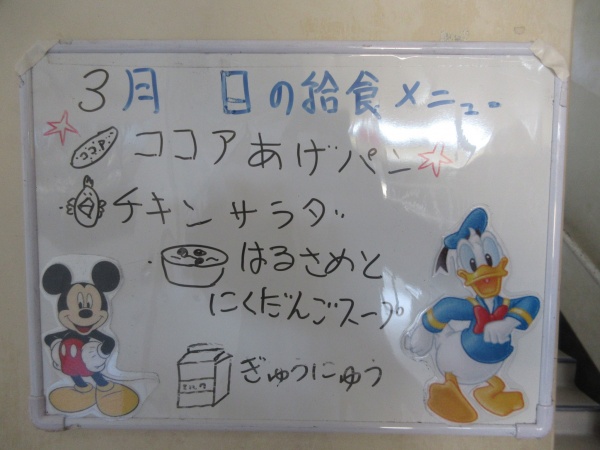 3月 日の給食メニュー
ココア
ココアあげパン
チキンサラダ
はるさめと
にくだんごスープ
ぎゅうにゅう